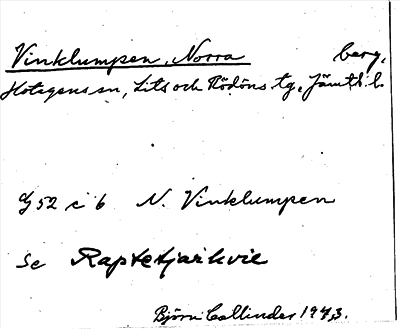 Vinklumpen, Norra berg,
Hotagens sn, Lits och Rödöns tg, Jämtl. l.
G 52 c b N. Vinklumpen
Se Raptetjarkvie
Björn Collinder 1943.